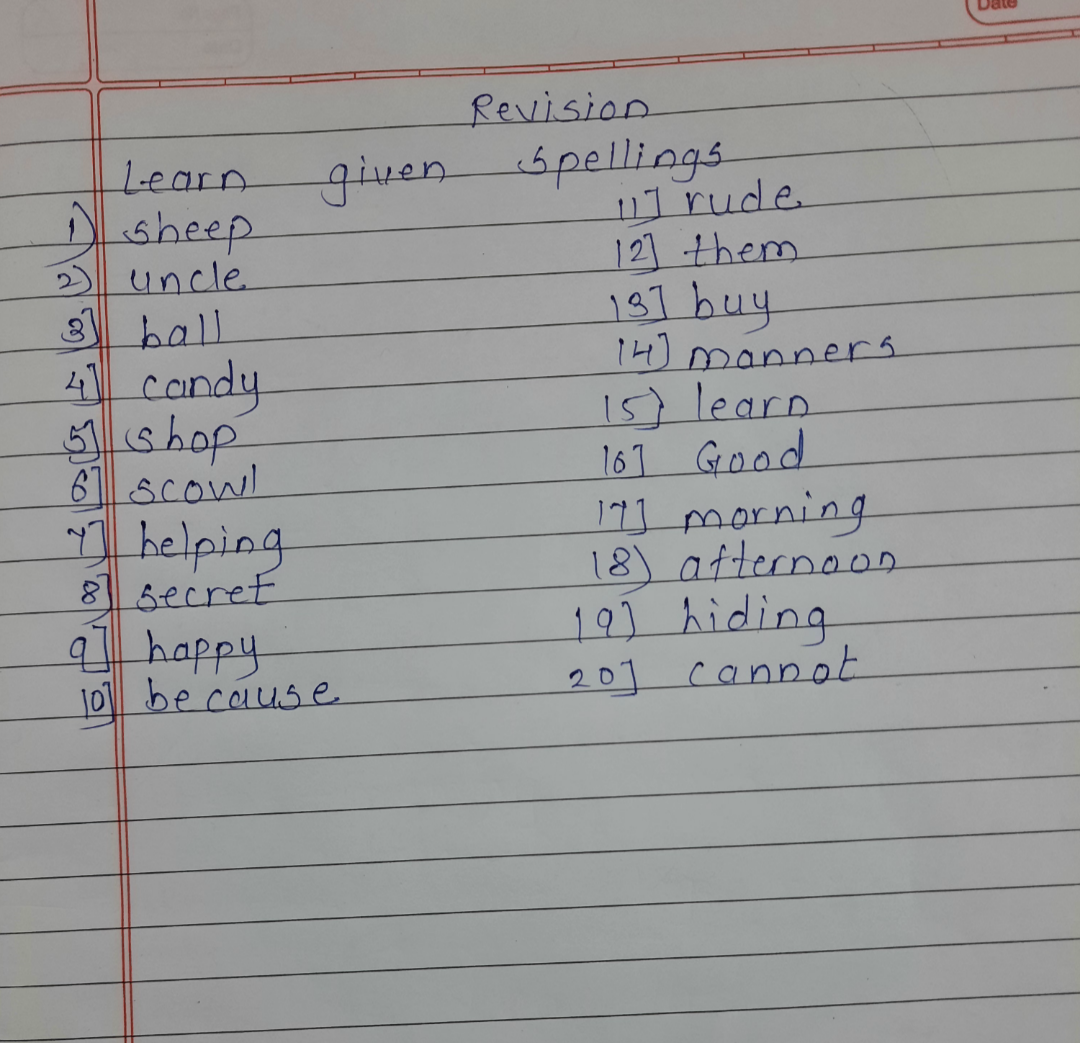 Date
Revision
Learn given spellings
1) sheep
2) uncle
3] ball
4] candy
5] shop
6] scowl
7] helping
8] secret
9] happy
10] because
11] rude
12] them
13] buy
14] manners
15} learn
16] Good
17] morning
18) afternoon
19] hiding
20] cannot